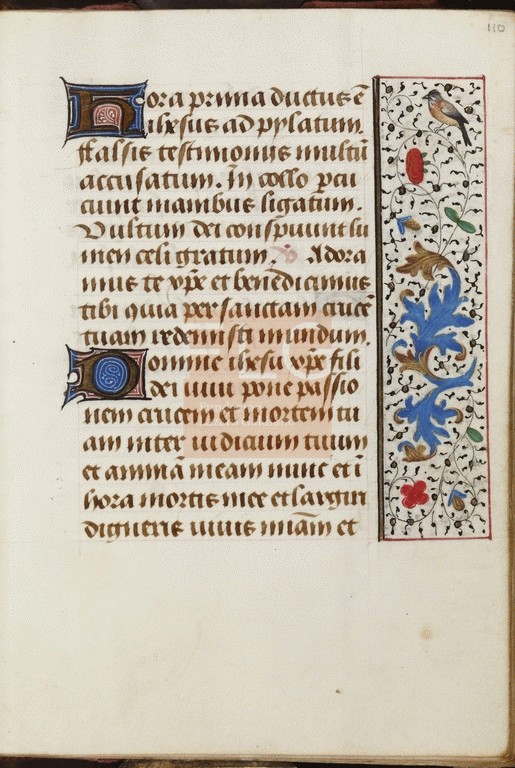 110
Hora prima ductus ē
ihesus ad pylatum.
ffalsis testimoniis multū
accusatum. In collo pcu
ciunt manibus ligatum.
Vultum dei conspuunt lu
men celi gratum. V Adora
mus te xpe et benedicimus
tibi quia per sanctam crucē
tuam redemisti mundum.
Domine ihesu xpe fili
dei uiui pone passio
nem crucem et mortem tu
am inter iudicium tuum
et animā meam nunc et ī
hora mortis mee et largiri
digneris uiuis miām et